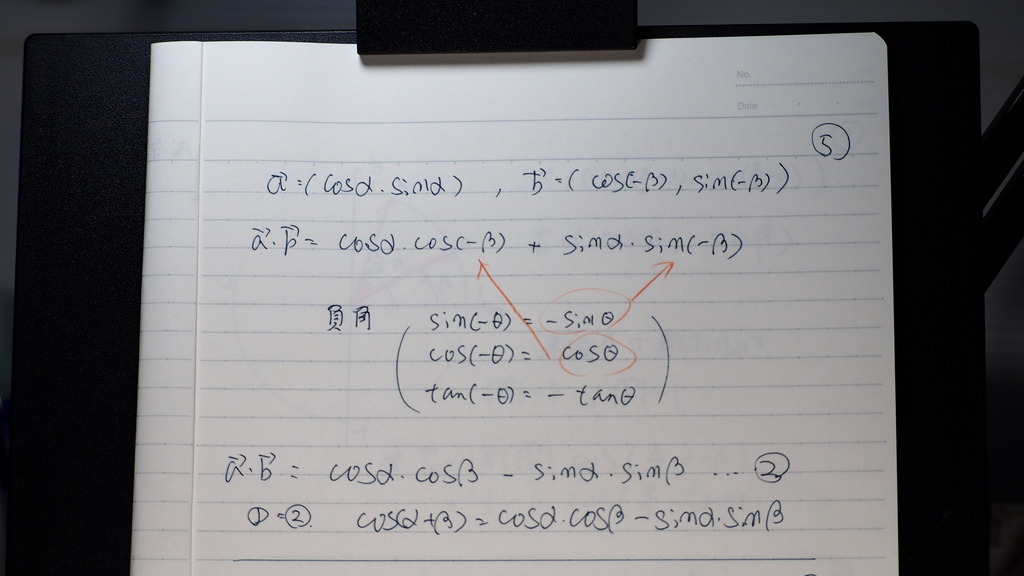 No.
Date
⑤
a⃗=(cosα.sinα) , b⃗=(cos(-β), sin(-β))
a⃗·b⃗= cosα.cos(-β) + sinα.sin(-β)
sin(-θ) = -sinθ
cos(-θ) = cosθ
tan(-θ) = - tanθ
a⃗·b⃗ = cosα.cosβ - sinα.sinβ ... ②
①=②. cos(α+β) = cosα.cosβ - sinα.sinβ